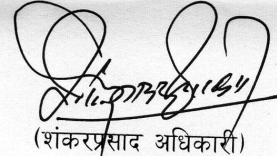 (शंकरप्रसाद अधिकारी)